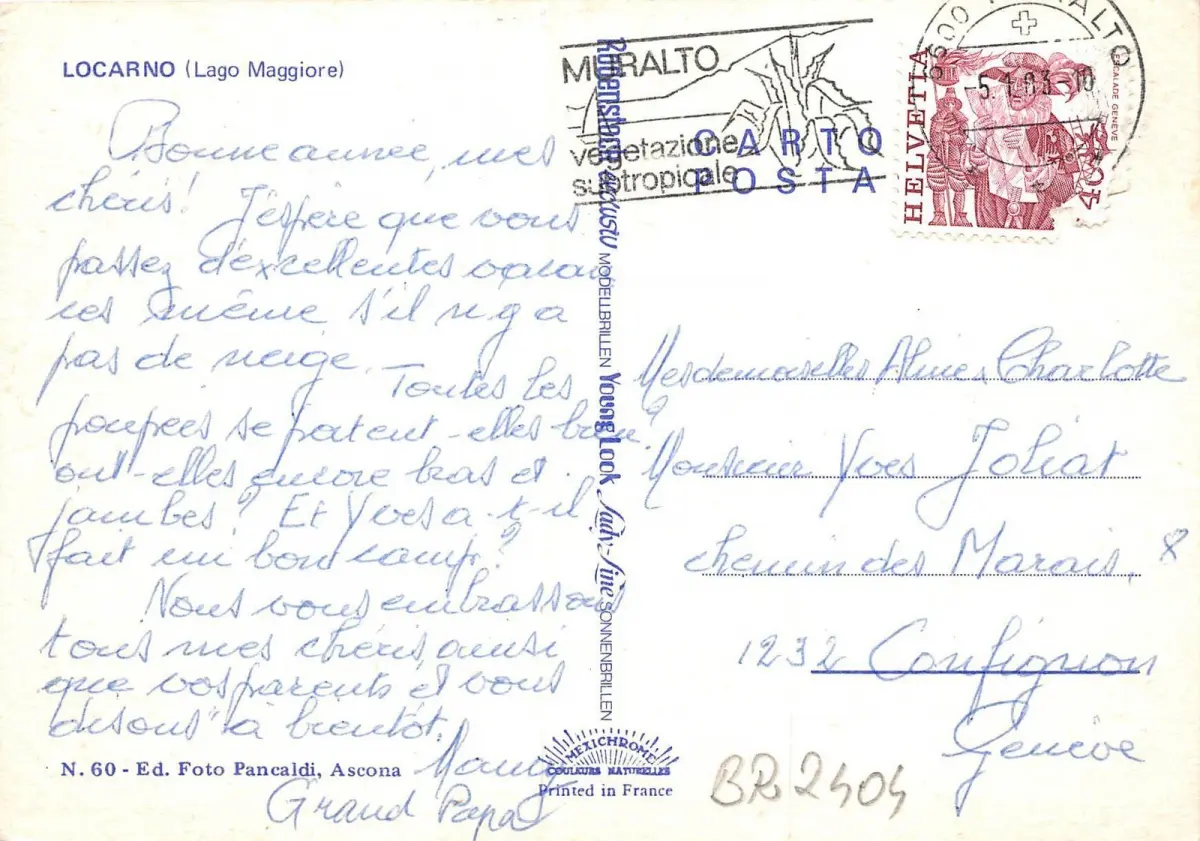 LOCARNO (Lago Maggiore)
Bonne année, mes
chéris! J'espère que vous
passez d'excellentes vacan
ces même s'il n'y a
pas de neige. Toutes les
poupées se portent-elles bien?
ont-elles encore bras et
jambes? Et Yves a-t-il
fait un bon camp?
Nous vous embrassons
tous mes chéris, ainsi
que vos parents et vous
disons "à bientôt.
Grand Papa
N. 60 - Ed. Foto Pancaldi, Ascona
MURALTO
vegetazione
subtropicale
CARTO
POSTA
exclusiv MODELLBRILLEN Young Look Lady-Line SONNENBRILLEN
MEXICHROME
COULEURS NATURELLES
Printed in France
6600 MURALTO
-5.1.83-10
HELVETIA
ESCALADE GENÈVE
40
Mesdemoiselles Aline & Charlotte
Monsieur Yves Joliat
chemin des Marais, 8
1232 Confignon
Genève
BR 2404